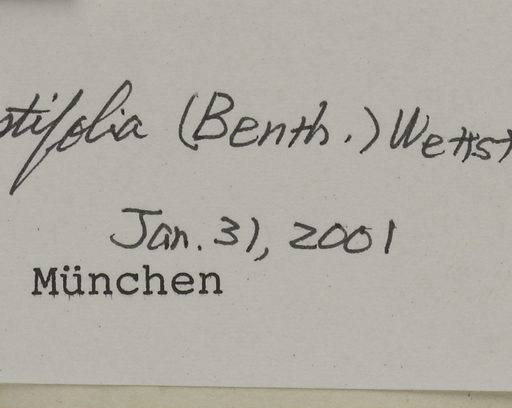 stifolia (Benth.) Wettst
Jan. 31, 2001
München